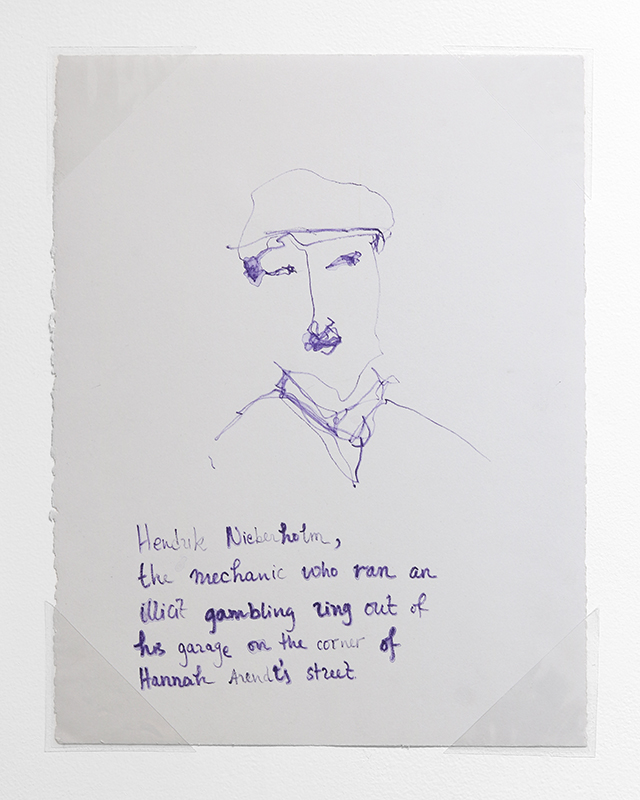 Hendrik Nieberholm,
the mechanic who ran an
illicit gambling ring out of
his garage on the corner of
Hannah Arendt's street.